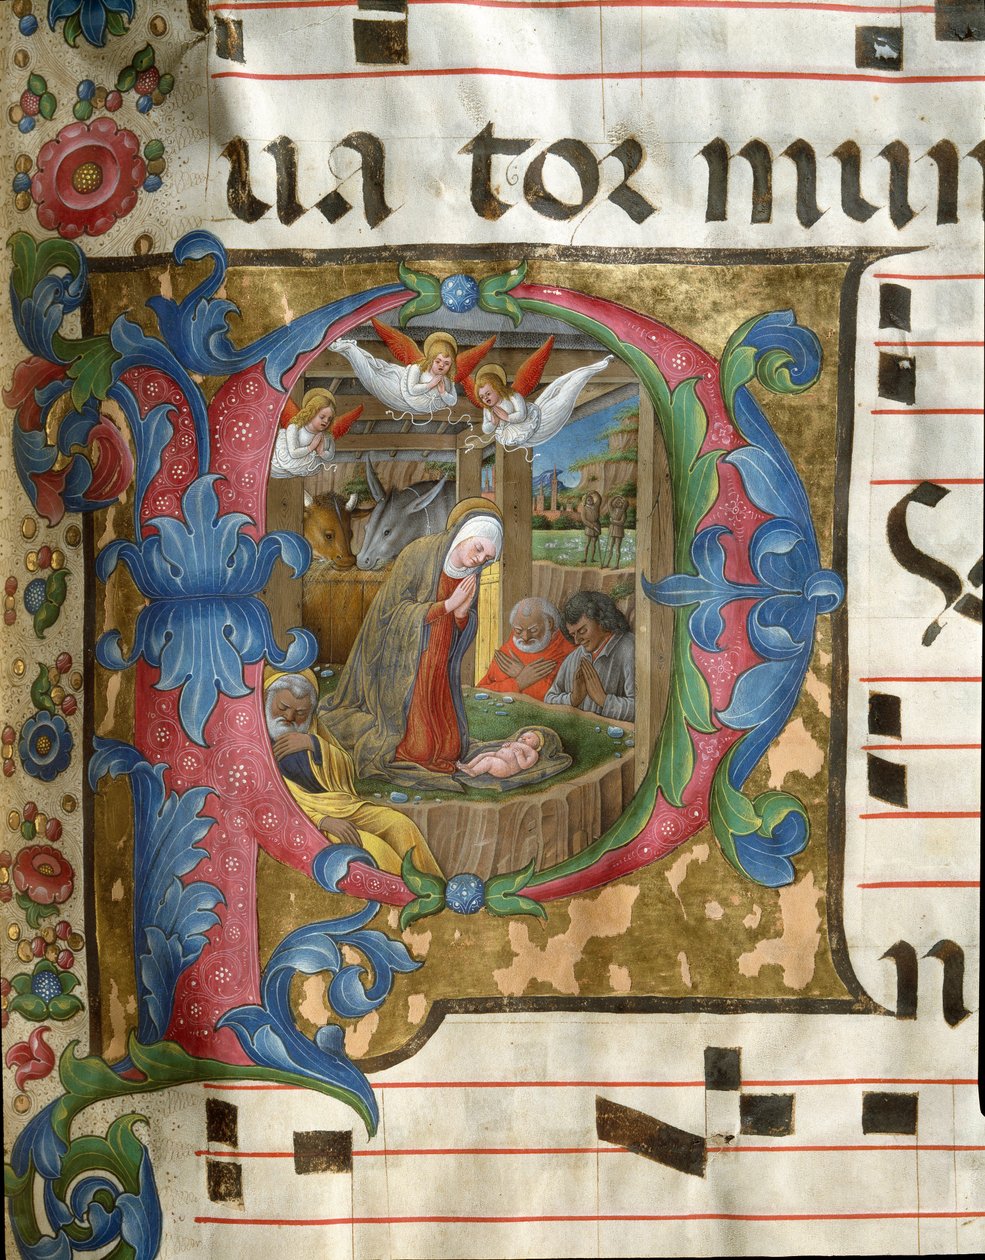 ua tor mun
P
n